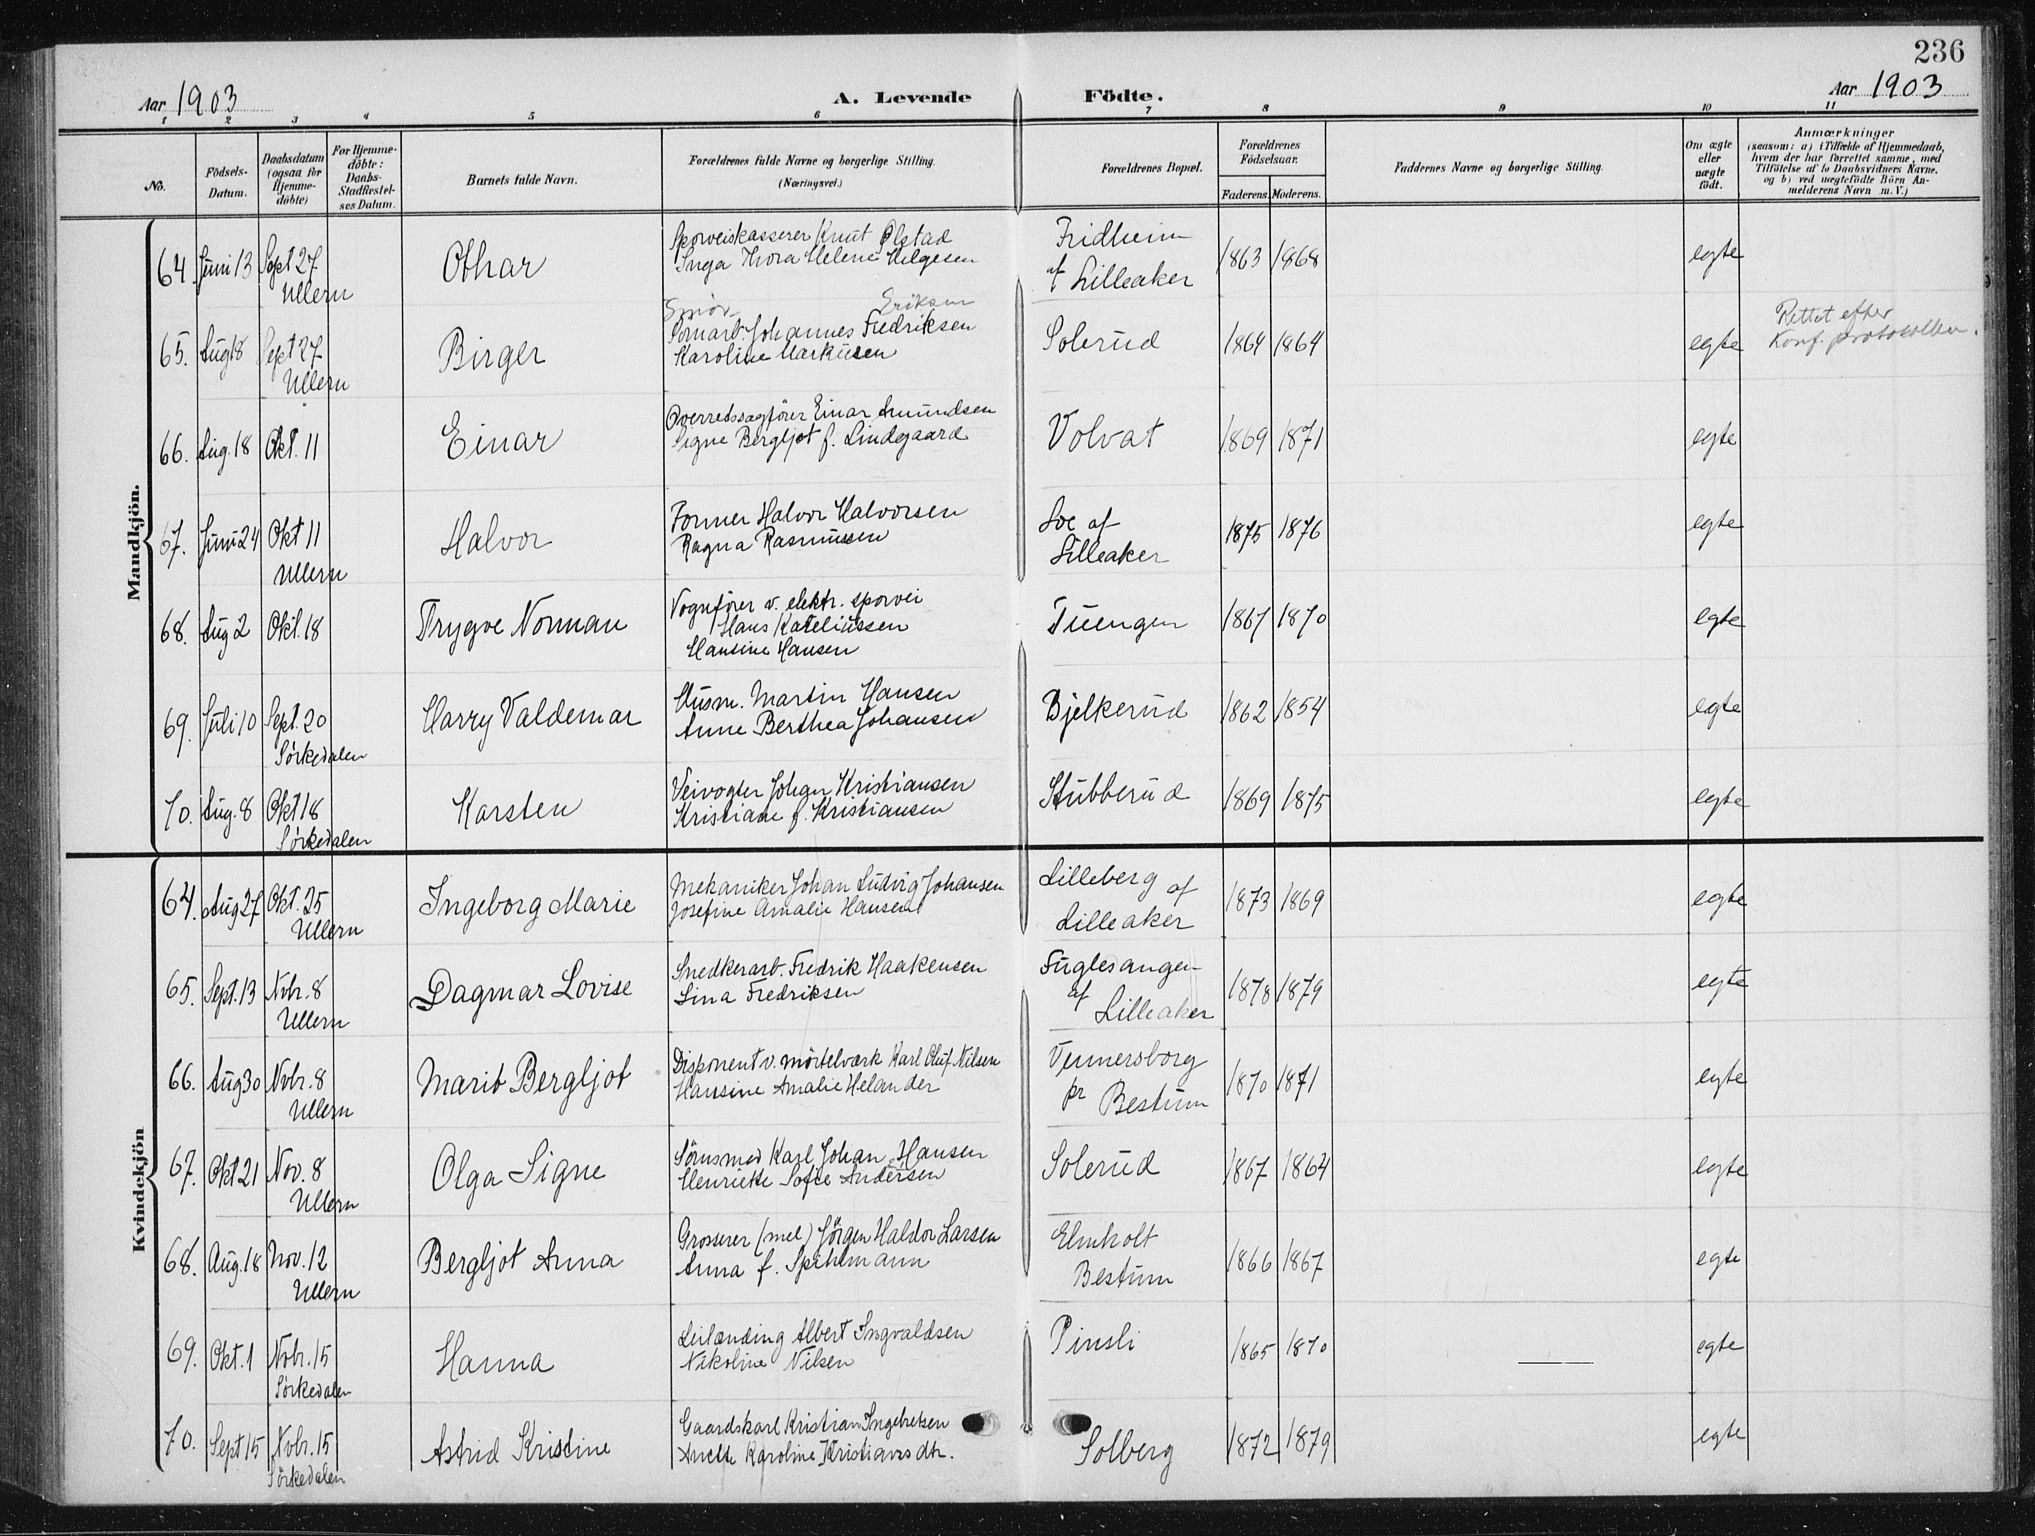 236
Aar 1903
A. Levende Födte.
Aar 1903
1 2 3 4 5 6 7 8 9 10 11
No.
Födsels-Datum.
Daabsdatum (ogsaa for Hjemmedöbte)
For Hjemmedöbte: Daabs-Stadfæstelses Datum.
Barnets fulde Navn.
Forældrenes fulde Navne og borgerlige Stilling. (Næringsvei.)
Forældrenes Bopæl.
Forældrenes Födselsaar.
Faderens. Moderens.
Faddernes Navne og borgerlige Stilling.
Om ægte eller uægte födt.
Anmærkninger
(saasom: a) i Tilfælde af Hjemmedaab, hvem der har forrettet samme, med Tilföielse af to Daabsvidners Navne. og b) ved uægtefödte Börn Anmelderens Navn m. V.)
Mandkjön.
64. Juni 13 Sept 27 Ullern Othar Sporveiskasserer Knut Ølstad
Inga Thora Helene Helgesen Fridheim af Lilleaker 1863 1868 egte
Eriksen
65. Aug 8 Sept 27 Ullern Birger Johannes Fredriksen
Karoline Markusen Solerud 1864 1864 egte Rettet efter Konf. protokollen.
66. Aug. 18 Okt. 11 Einar Overretssagfører Einar Amundsen
Signe Bergljot f. Lindgaard Volvat 1869 1871 egte
67. Juni 24 Okt 11 Ullern Halvor Former Halvor Halvorsen
Ragna Rasmussen Loe af Lilleaker 1875 1876 egte
68. Aug 2 Okt. 18 Trygve Norman Vognfører v. elektr. sporvei
Hans Kateliussen
Hansine Hansen Tuengen 1867 1870 egte
69. Juli 10 Sept. 20 Sørkedalen Harry Valdemar Husm. Martin Hansen
Anne Berthea Johansen Bjelkerud 1862 1854 egte
70. Aug. 8 Okt 18 Sørkedalen Karsten Veivogter Johan Kristiansen
Kristiane f. Kristiansen Stubberud 1869 1875 egte
Kvindekjön
64. Aug 27 Okt. 25 Ullern Ingeborg Marie Mekaniker Johan Ludvig Johansen
Josefine Amalie Hansen Lilleberg af Lilleaker 1873 1869 egte
65. Sept. 13 Novbr. 8 Ullern Dagmar Lovise Snedkerarb. Fredrik Haakensen
Lina Fredriksen Fuglesangen af Lilleaker 1878 1879 egte
66. Aug 30 Novbr. 8 Ullern Marit Bergljot Disponent v. mörtelværk Karl Oluf Nilsen
Hansine Amalie Helander Vennersborg pr Bestum 1870 1871 egte
67. Okt 21 Nov. 8 Ullern Olga Signe Karl Johan Hansen
Henriette Sofie Andersen Solerud 1867 1864 egte
68. Aug. 18 Nov. 12 Ullern Bergljot Anna Grosserer (mel) Jørgen Haldor Larsen
Anna f. Elmholt Bestum 1866 1867 egte
69. Okt. 1 Novbr. 15 Sørkedalen Hanna Leilænding Albert Ingvaldsen
Nikoline Nilsen Pinsli 1865 1870 egte
70. Sept 15 Novbr. 15 Sørkedalen Astrid Kristine Gaardskarl Kristian Ingebretsen
Anette Karoline Kristiansdtr. Solberg 1872 1879 egte